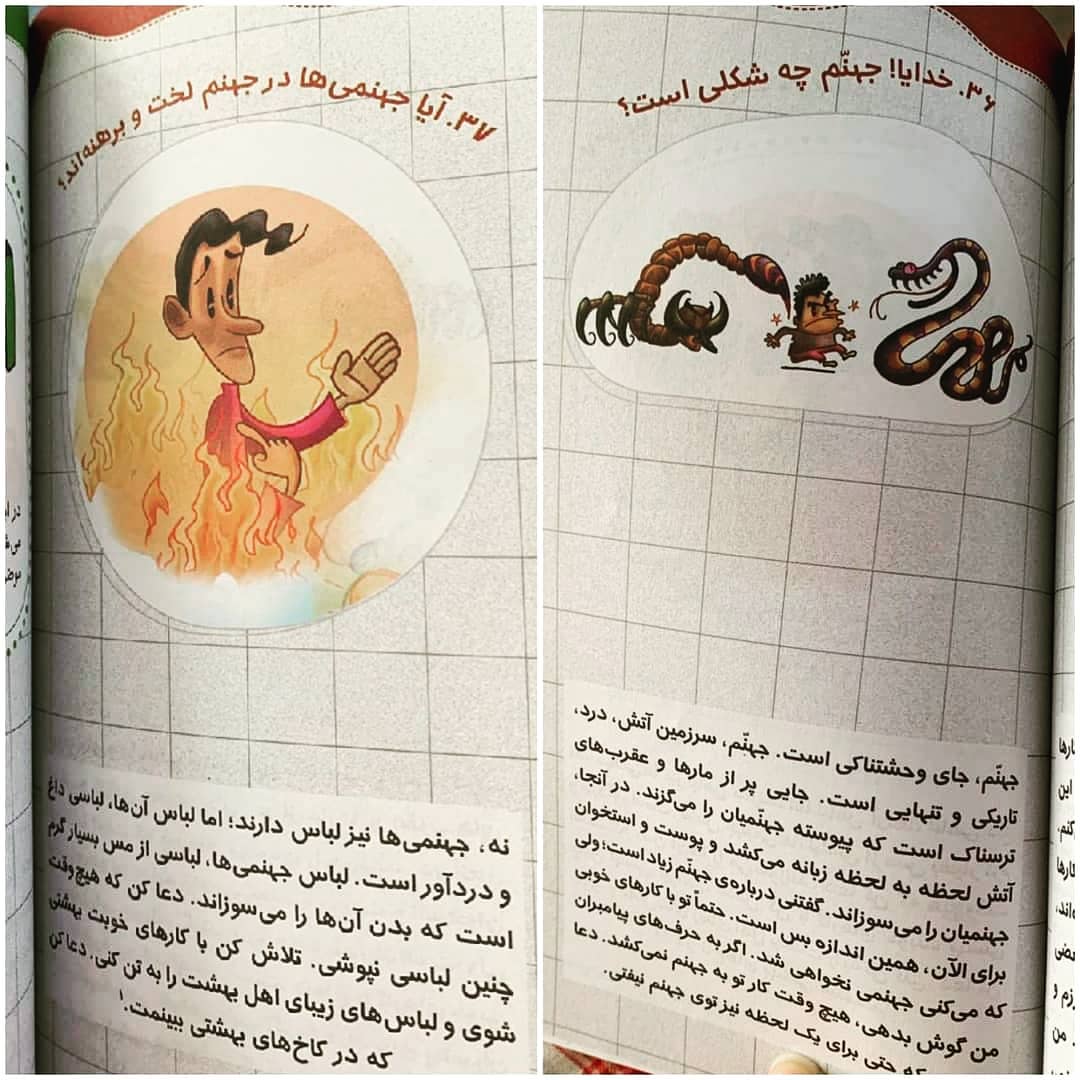 ۳۶. خدایا! جهنّم چه شکلی است؟
جهنّم، جای وحشتناکی است. جهنّم، سرزمین آتش، درد،
تاریکی و تنهایی است. جایی پر از مارها و عقرب‌های
ترسناک است که پیوسته جهنّمیان را می‌گزند. در آنجا،
آتش لحظه به لحظه زبانه می‌کشد و پوست و استخوان
جهنمیان را می‌سوزاند. گفتنی درباره‌ی جهنّم زیاد است؛ ولی
برای الآن، همین اندازه بس است. حتماً تو با کارهای خوبی
که می‌کنی جهنمی نخواهی شد. اگر به حرف‌های پیامبران
من گوش بدهی، هیچ وقت کار تو به جهنم نمی‌کشد. دعا
که حتی برای یک لحظه نیز توی جهنم نیفتی.
۳۷. آیا جهنمی‌ها در جهنم لخت و برهنه‌اند؟
نه، جهنمی‌ها نیز لباس دارند؛ اما لباس آن‌ها، لباسی داغ
و دردآور است. لباس جهنمی‌ها، لباسی از مس بسیار گرم
است که بدن آن‌ها را می‌سوزاند. دعا کن که هیچ‌وقت
چنین لباسی نپوشی. تلاش کن با کارهای خوبت بهشتی
شوی و لباس‌های زیبای اهل بهشت را به تن کنی. دعا کن
که در کاخ‌های بهشتی ببینمت.۱